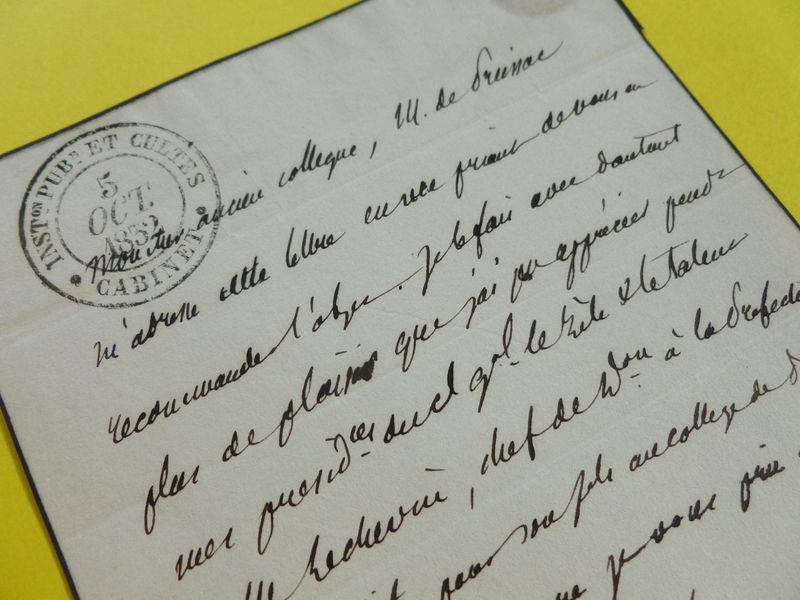 INST.ON PUB.E ET CULTES
5
OCT.
1832
CABINET
Mon cher ancien collegue, M. de Preissac
m'adresse cette lettre en me priant de vous en
recommander l'objet. Je le fais avec d'autant
plus de plaisir que j'ai pu apprécier pend.t
mes présid.ces le zèle & le talent
chef de D.on à la Préfec
pour son fils au collège de
je vous prie